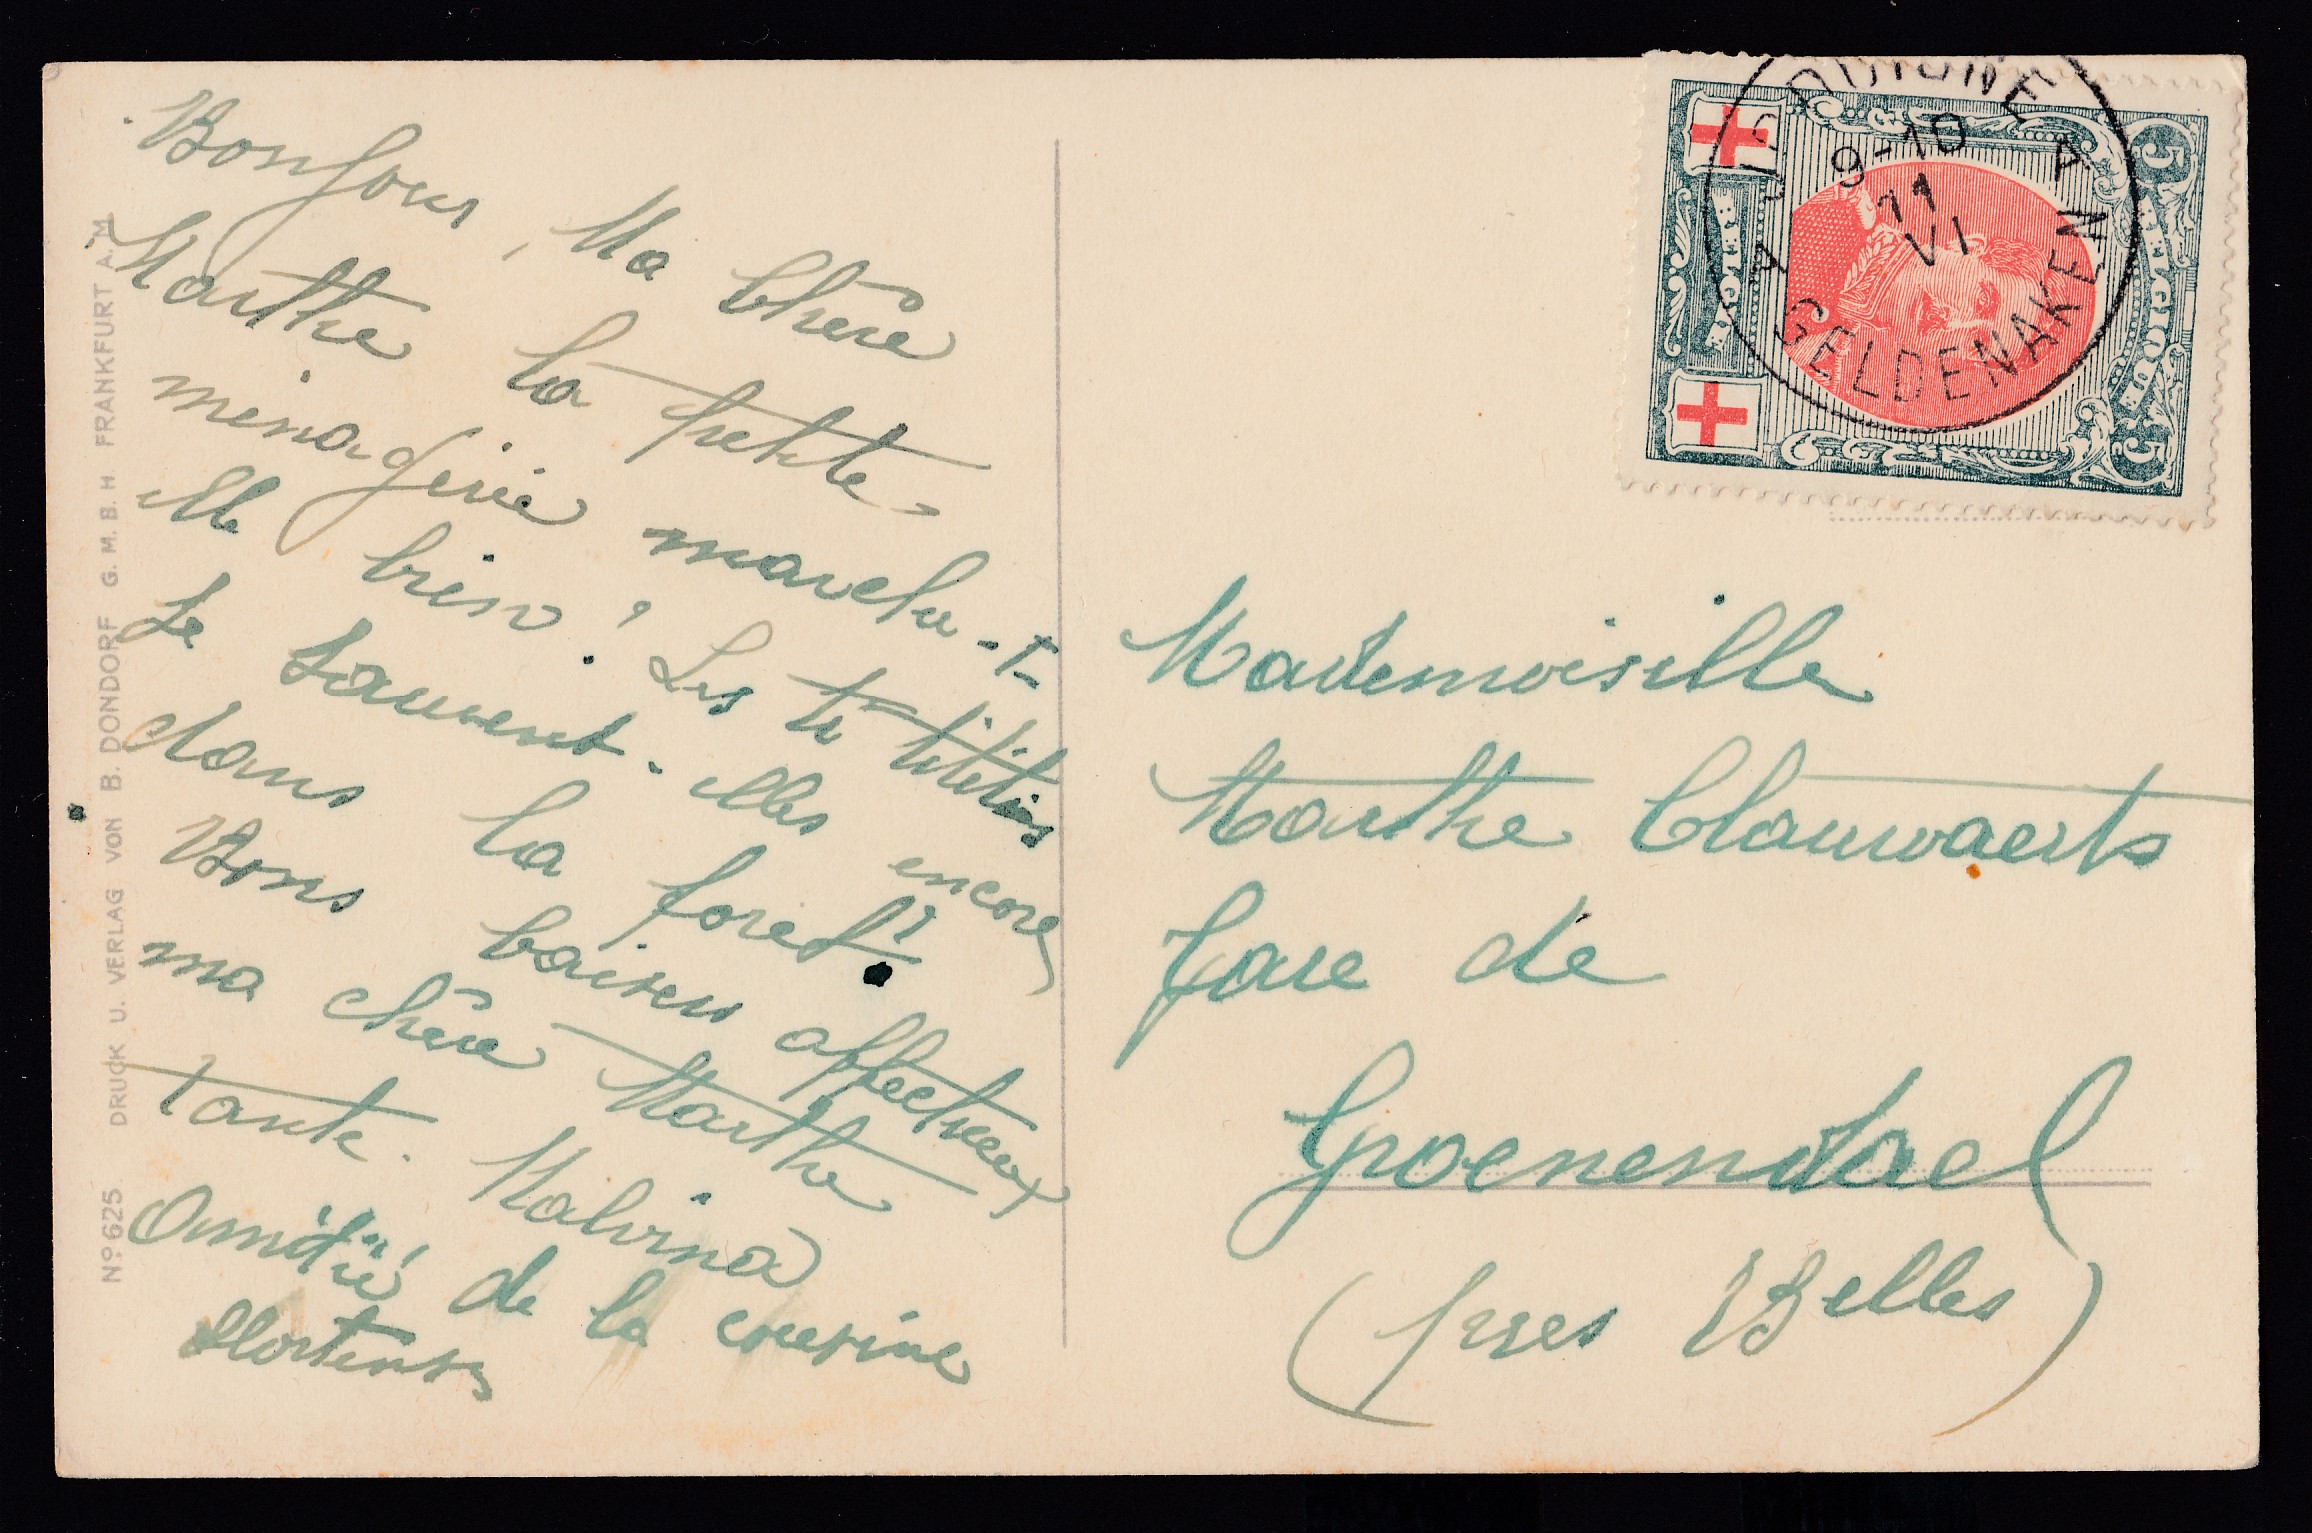 Bonjour, Ma Chère
Marthe la petite
menagerie marche-t-
elle bien? Les
Se sauvent-elles encore
dans la foret?
Bons baisers affectueux
ma chère Marthe
Tante. Malvina
Amitié de la cousine
Hortense
Mademoiselle
Marthe Clauwaerts
Gare de
Groenendael
(pres Belles)
JODOIGNE
9-10
11
VI
A A
GELDENAKEN
5 BELGIQUE 5
BELGIË
No 625 DRUCK U. VERLAG VON B. DONDORF G.M.B.H FRANKFURT A.M